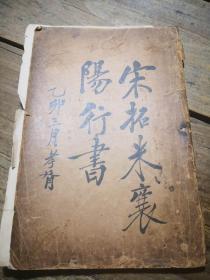 宋拓米襄
陽行書
乙卯三月孝胥